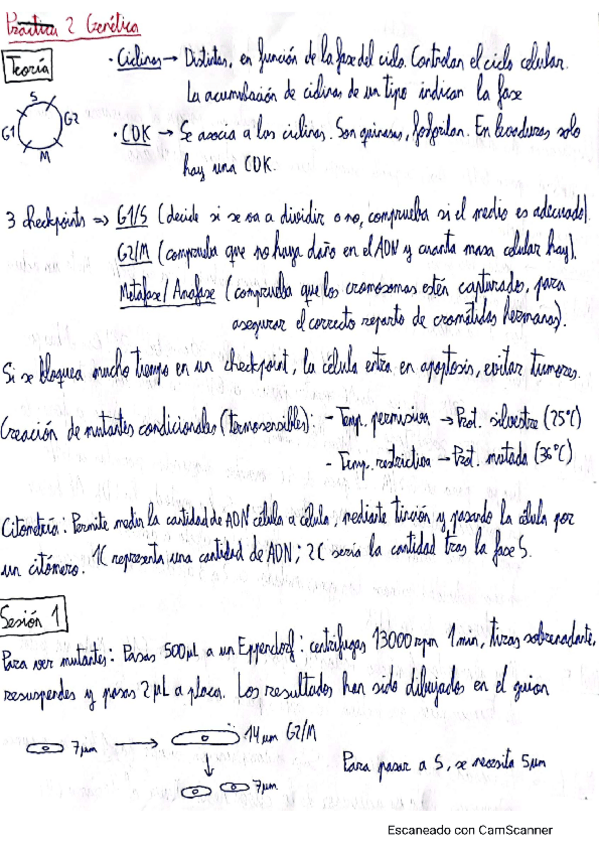 Práctica 2 Genética
Teoría
· Ciclinas → Distintas, en función de la fase del ciclo. Controlan el ciclo celular.
La acumulación de ciclinas de un tipo indican la fase
S
G1
G2
M
· CDK → Se asocia a las ciclinas. Son quinasas, fosforilan. En levaduras solo
hay una CDK.
3 checkpoints ⇒ G1/S (decide si se va a dividir o no, comprueba si el medio es adecuado).
G2/M (comprueba que no haya daño en el ADN y cuanta masa celular hay).
Metafase/Anafase (comprueba que los cromosomas estén capturados, para
asegurar el correcto reparto de cromátidas hermanas).
Si se bloquea mucho tiempo en un checkpoint, la célula entra en apoptosis, evitar tumores.
Creación de mutantes condicionales (termosensibles): - Temp. permisiva → Prot. silvestre (25°C)
- Temp. restrictiva → Prot. mutada (36°C)
Citometría: Permite medir la cantidad de ADN célula a célula, mediante tinción y pasando la célula por
un citómero. 1C representa una cantidad de ADN; 2C sería la cantidad tras la fase S.
Sesión 1
Para ver mutantes: Pasas 500µl a un Eppendorf: centrifugas 13000 rpm 1 min, tiras sobrenadante,
resuspendes y pasas 2 µL a placa. Los resultados han sido dibujados en el guion
7µm → 14µm G2/M
↓
7µm
Para pasar a S, se necesita 5µm
Escaneado con CamScanner